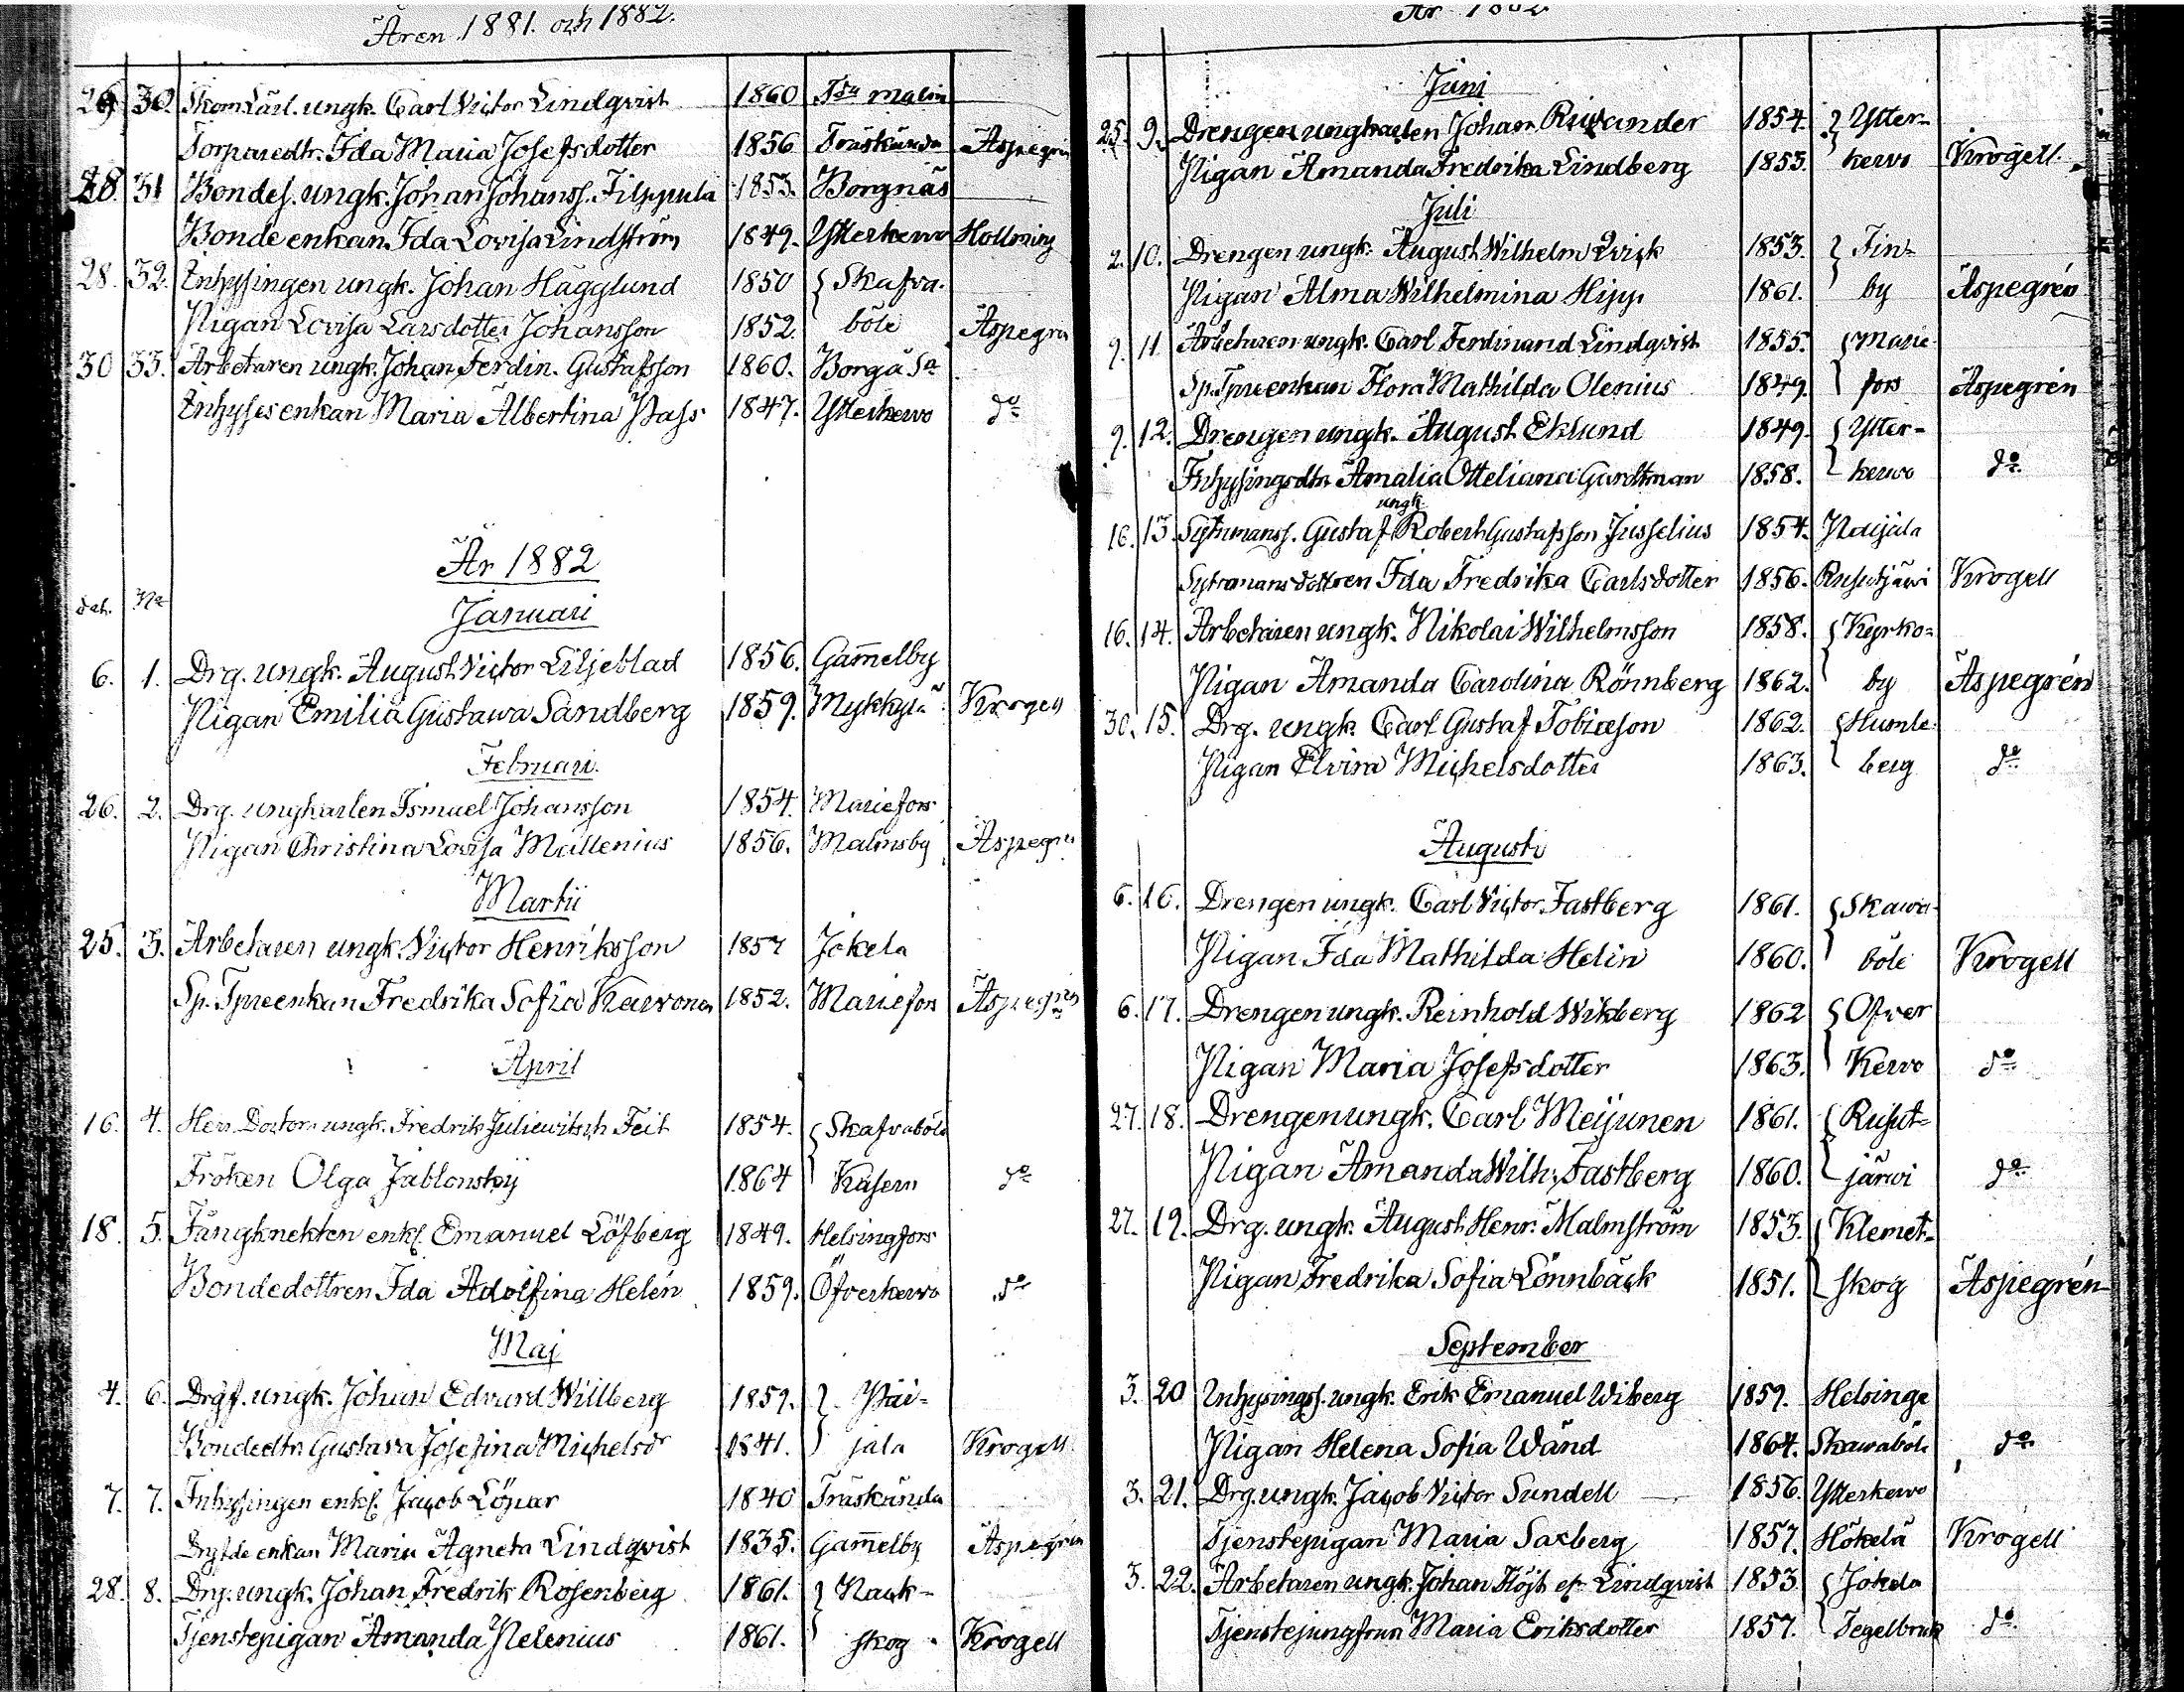 Åren 1881. och 1882.
29 30. Skom.Lärl. ungk. Carl Victor Lindqvist 1860 malm
Torparedtr. Ida Maria Josefsdotter 1856 Träskända Aspegrén
28. 31 Bondes. ungk. Johan Johanss. Filppula 1853. Borgnäs
Bonde enkan Ida Lovisa Lindström 1849. Ytterkervo Hollming
28. 32. Inhysingen ungk. Johan Hägglund 1850 { Skafva-
Pigan Lovisa Larsdotter Johansson 1852. böle Aspegrén
30 33. Arbetaren ungk. Johan Ferdin. Gustafsson 1860. Borgå Sn
Inhyses enkan Maria Albertina 1847. Ytterkervo do
År 1882
dat. No
Januari
6. 1. Drg. ungk. August Victor Liljeblad 1856. Gam̄elby
Pigan Emilia Gustawa Sandberg 1859. Mykkylä Krogell
Februari.
26. 2. Drg. ungkarlen Ismael Johansson 1854. Mariefors
Pigan Christina Lovisa Mallenius 1856. Malmsby Aspegrén
Martii
25. 3. Arbetaren ungk. Victor Henriksson 1857 Jokela
Sp. Tpreenkan Fredrika Sofia 1852. Mariefors Aspegrén
April
16. 4. Herr Doctorn ungk. Fredrik Juliewitsch Feit 1854. { Skafvaböle
Fröken Olga Jablonskij 1864 Kasern do
18. 5. Fångknekten enkl. Emanuel Löfberg 1849. Helsingfors
Bondedottren Ida Adolfina Helén 1859. Öfverkervo do
Maj
4. 6. Drgs. ungk. Johan Edvard Willberg 1859. } Päi-
Bondedtr. Gustava Josefina Michelsdr 1841. jala Krogell
7. 7. Inhysingen enkl. Jacob Löpar 1840 Träskända
enkan Maria Agneta Lindqvist 1835. Gam̄elby Aspegrén
28. 8. Drg. ungk. Johan Fredrik Rosenberg 1861. } Nack-
Tjenstepigan Amanda Nelenius 1861. skog Krogell
År 1882
Juni
25. 9. Drengen ungkarlen Johan 1854. } Ytter-
Pigan Amanda Fredrika Lindberg 1853. kervo Krogell.
Juli
2. 10. Drengen ungk. August Wilhelm Qvick 1853. } Fin-
Pigan Alma Wilhelmina Hipp 1861. by Aspegrén
9. 11. Arbetaren ungk. Carl Ferdinand Lindqvist 1855. { Marie-
Sp. Tpreenkan Flora Mathilda Olenius 1849. fors Aspegrén
9. 12. Drengen ungk. August Eklund 1849. { Ytter-
Inhysingsdtr. Amalia Otteliana Gardtman 1858. kervo do
ungk
16. 13. Sytnmanss. Gustaf Robert Gustafsson Jusselius 1854. Paijala
Sytnmansdottren Ida Fredrika Carlsdotter 1856. Rusutjärvi Krogell
16. 14. Arbetaren ungk. Nikolai Wilhelmsson 1858. { Kyrko-
Pigan Amanda Carolina Rönnberg 1862. by Aspegrén
30. 15. Drg. ungk. Carl Gustaf Tobiason 1862. { Humle-
Pigan Elvira Michelsdotter 1863. berg do
Augusti
6. 16. Drengen ungk. Carl Victor Fastberg 1861. { Skawa-
Pigan Ida Mathilda Helin 1860. böle Krogell
6. 17. Drengen ungk. Reinhold Wikberg 1862 { Öfver
Pigan Maria Josefsdotter 1863. Kervo do
27. 18. Drengen ungk. Carl Meijunen 1861. { Rusut-
Pigan Amanda Wilh. Fastberg 1860. järwi do
27. 19. Drg. ungk. August Henr. Malmström 1853. { Klemet-
Pigan Fredrika Sofia Lönnbäck 1851. skog Aspegrén
September
3. 20 Inhysings. ungk. Erik Emanuel Wiberg 1859. Helsinge
Pigan Helena Sofia Wänd 1864. Skawaböle do
3. 21. Drg. ungk. Jacob Victor Sundell 1856. Ytterkervo
Tjenstepigan Maria Saxberg 1857. Hökelä Krogell
3. 22. Arbetaren ungk. Johan Höjt el. Lindqvist 1853. { Jokela
Tjenstejungfrun Maria Eriksdotter 1857. Tegelbruk do